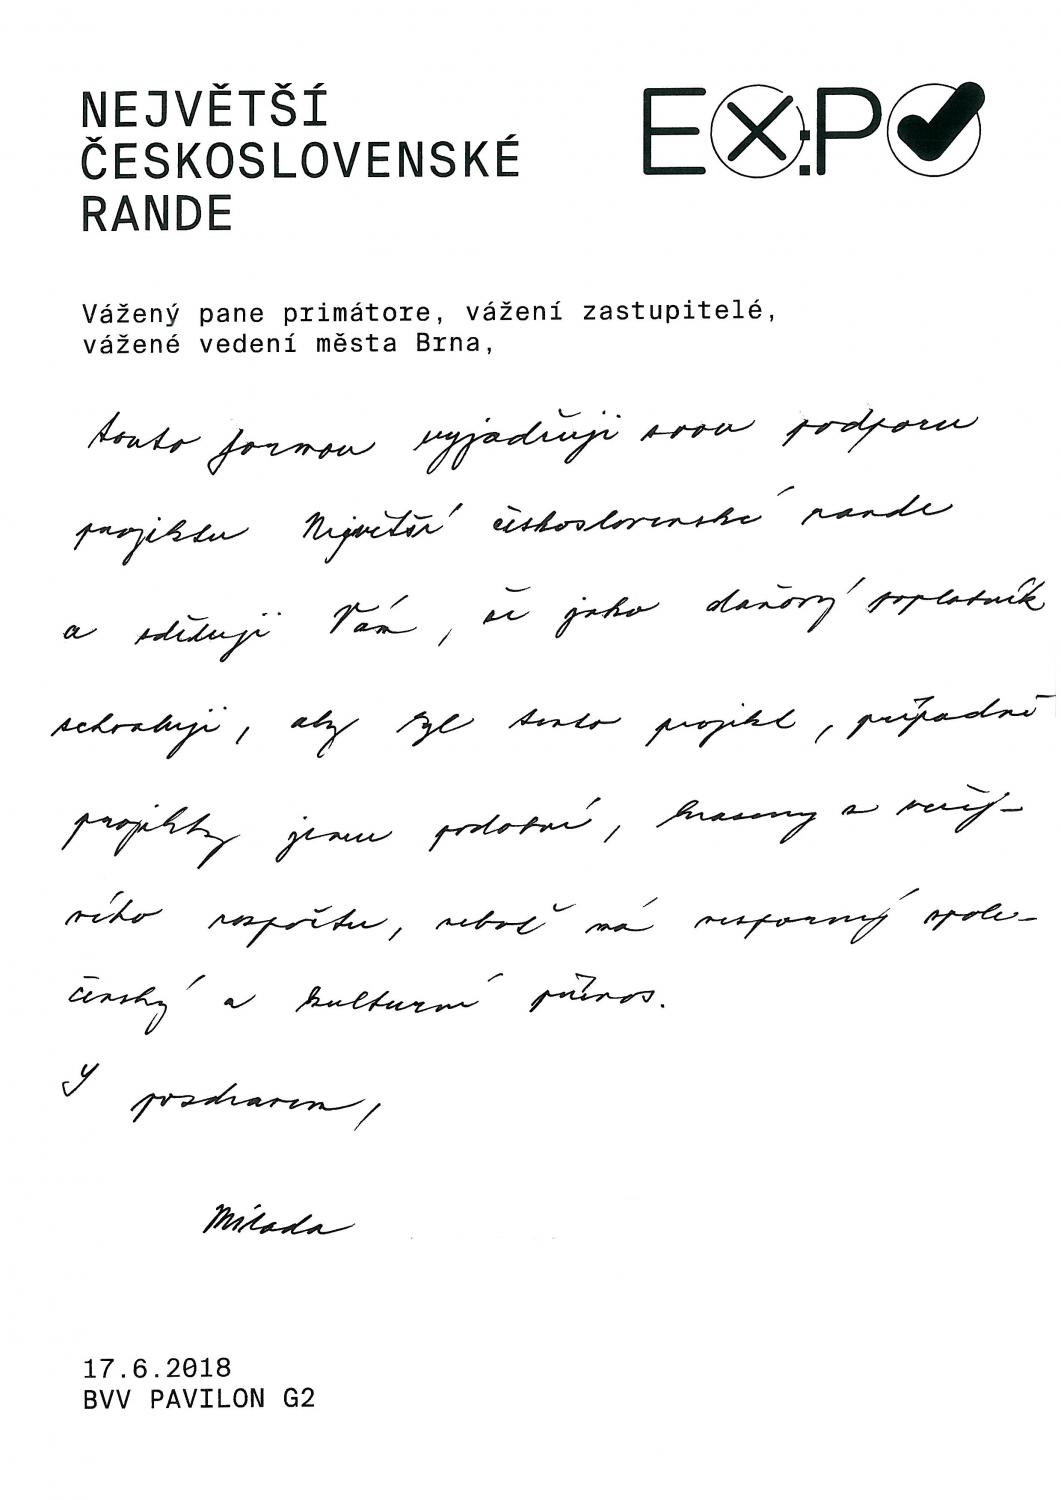 NEJVĚTŠÍ
ČESKOSLOVENSKÉ
RANDE
EX:PO
Vážený pane primátore, vážení zastupitelé,
vážené vedení města Brna,
touto formou vyjadřuji svou podporu
projektu Největší československé rande
a sděluji Vám, že jako daňový poplatník
schvaluji, aby byl tento projekt, případně
projekty jemu podobné, hrazeny z veřej-
ného rozpočtu, neboť má nesporný spole-
čenský a kulturní přínos.
S pozdravem,
Milada
17.6.2018
BVV PAVILON G2